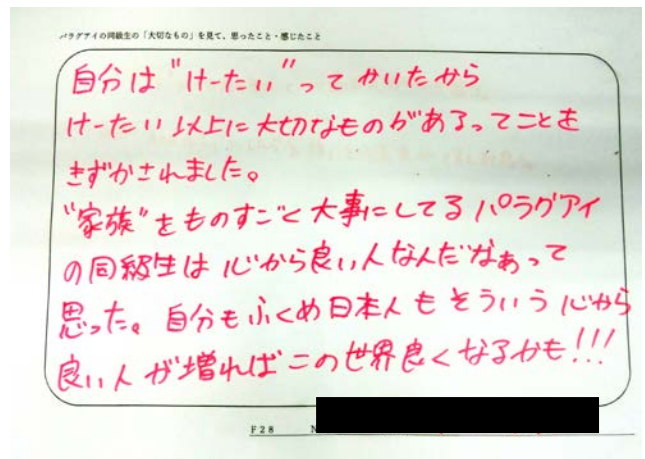 パラグアイの同級生の「大切なもの」を見て、思ったこと・感じたこと
自分は"けーたい"ってかいたから
けーたい以上に大切なものがあるってことを
きずかされました。
"家族"をものすごく大事にしてるパラグアイ
の同級生は心から良い人なんだなぁって
思った。自分もふくめ日本人もそういう心から
良い人が増ればこの世界良くなるかも!!!
F28 N